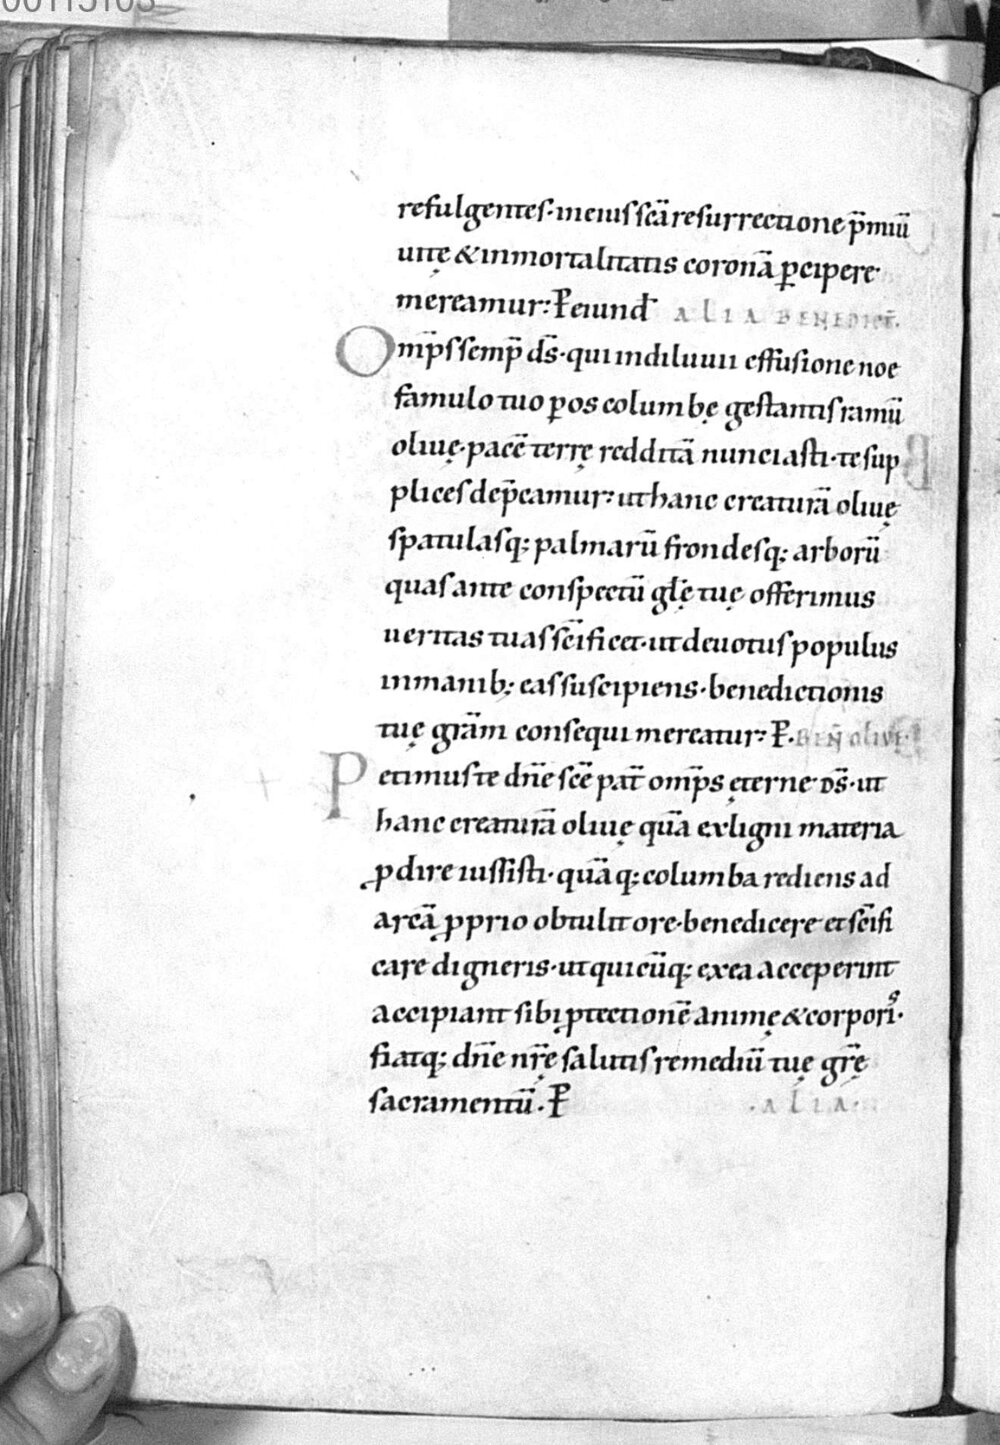 00113103
refulgentes· in eius scā resurrectione p̄miū
uitę & inmortalitatis coronā ꝑcipere
mereamur: P̄ eiund̄ ALIA BENEDICT̄.
Om̄ps semp̄ ds̄· qui in diluuii effusione noe
famulo tuo ꝑ os columbę gestantis ramū
oliuę· pacē terrę redditā nunciasti· te sup
plices dep̄camur: ut hanc creaturā oliuę
spatulasq; palmarū frondesq; arborū
quas ante conspectū glę̄ tuę offerimus
ueritas tua sc̄ificet· ut deuotus populus
in manib; eas suscipiens· benedictionis
tuę grām consequi mereatur: P̄. BEN̄ olivę·
Petimus te dn̄e scē pat̄ om̄ps ęterne ds̄· ut
hanc creaturā oliuę quā ex ligni materia
ꝓdire iussisti· quāq; columba rediens ad
arcā ꝓprio obtulit ore· benedicere et sc̄ifi
care digneris· ut quicūq; ex ea acceperint
accipiant sibi ꝓtectionē animę & corporis·
fiatq; dn̄e nr̄ę salutis remediū tuę gr̄ę
sacramentū. P̄ ·ALIA·